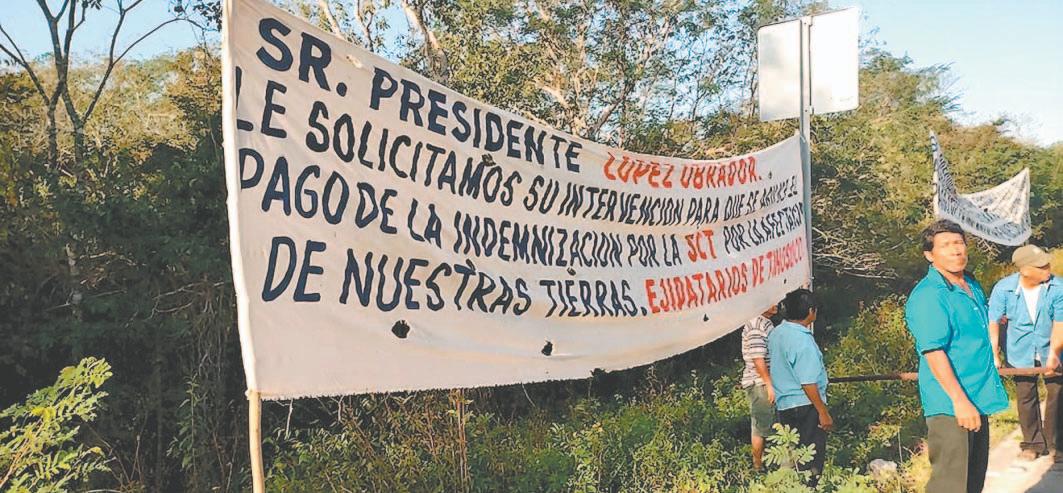 SR. PRESIDENTE LOPEZ OBRADOR.
LE SOLICITAMOS SU INTERVENCION PARA QUE SE EL
PAGO DE LA INDEMNIZACION POR LA SCT POR LA AFECTACION
DE NUESTRAS TIERRAS. EJIDATARIOS DE TIHOSUCO